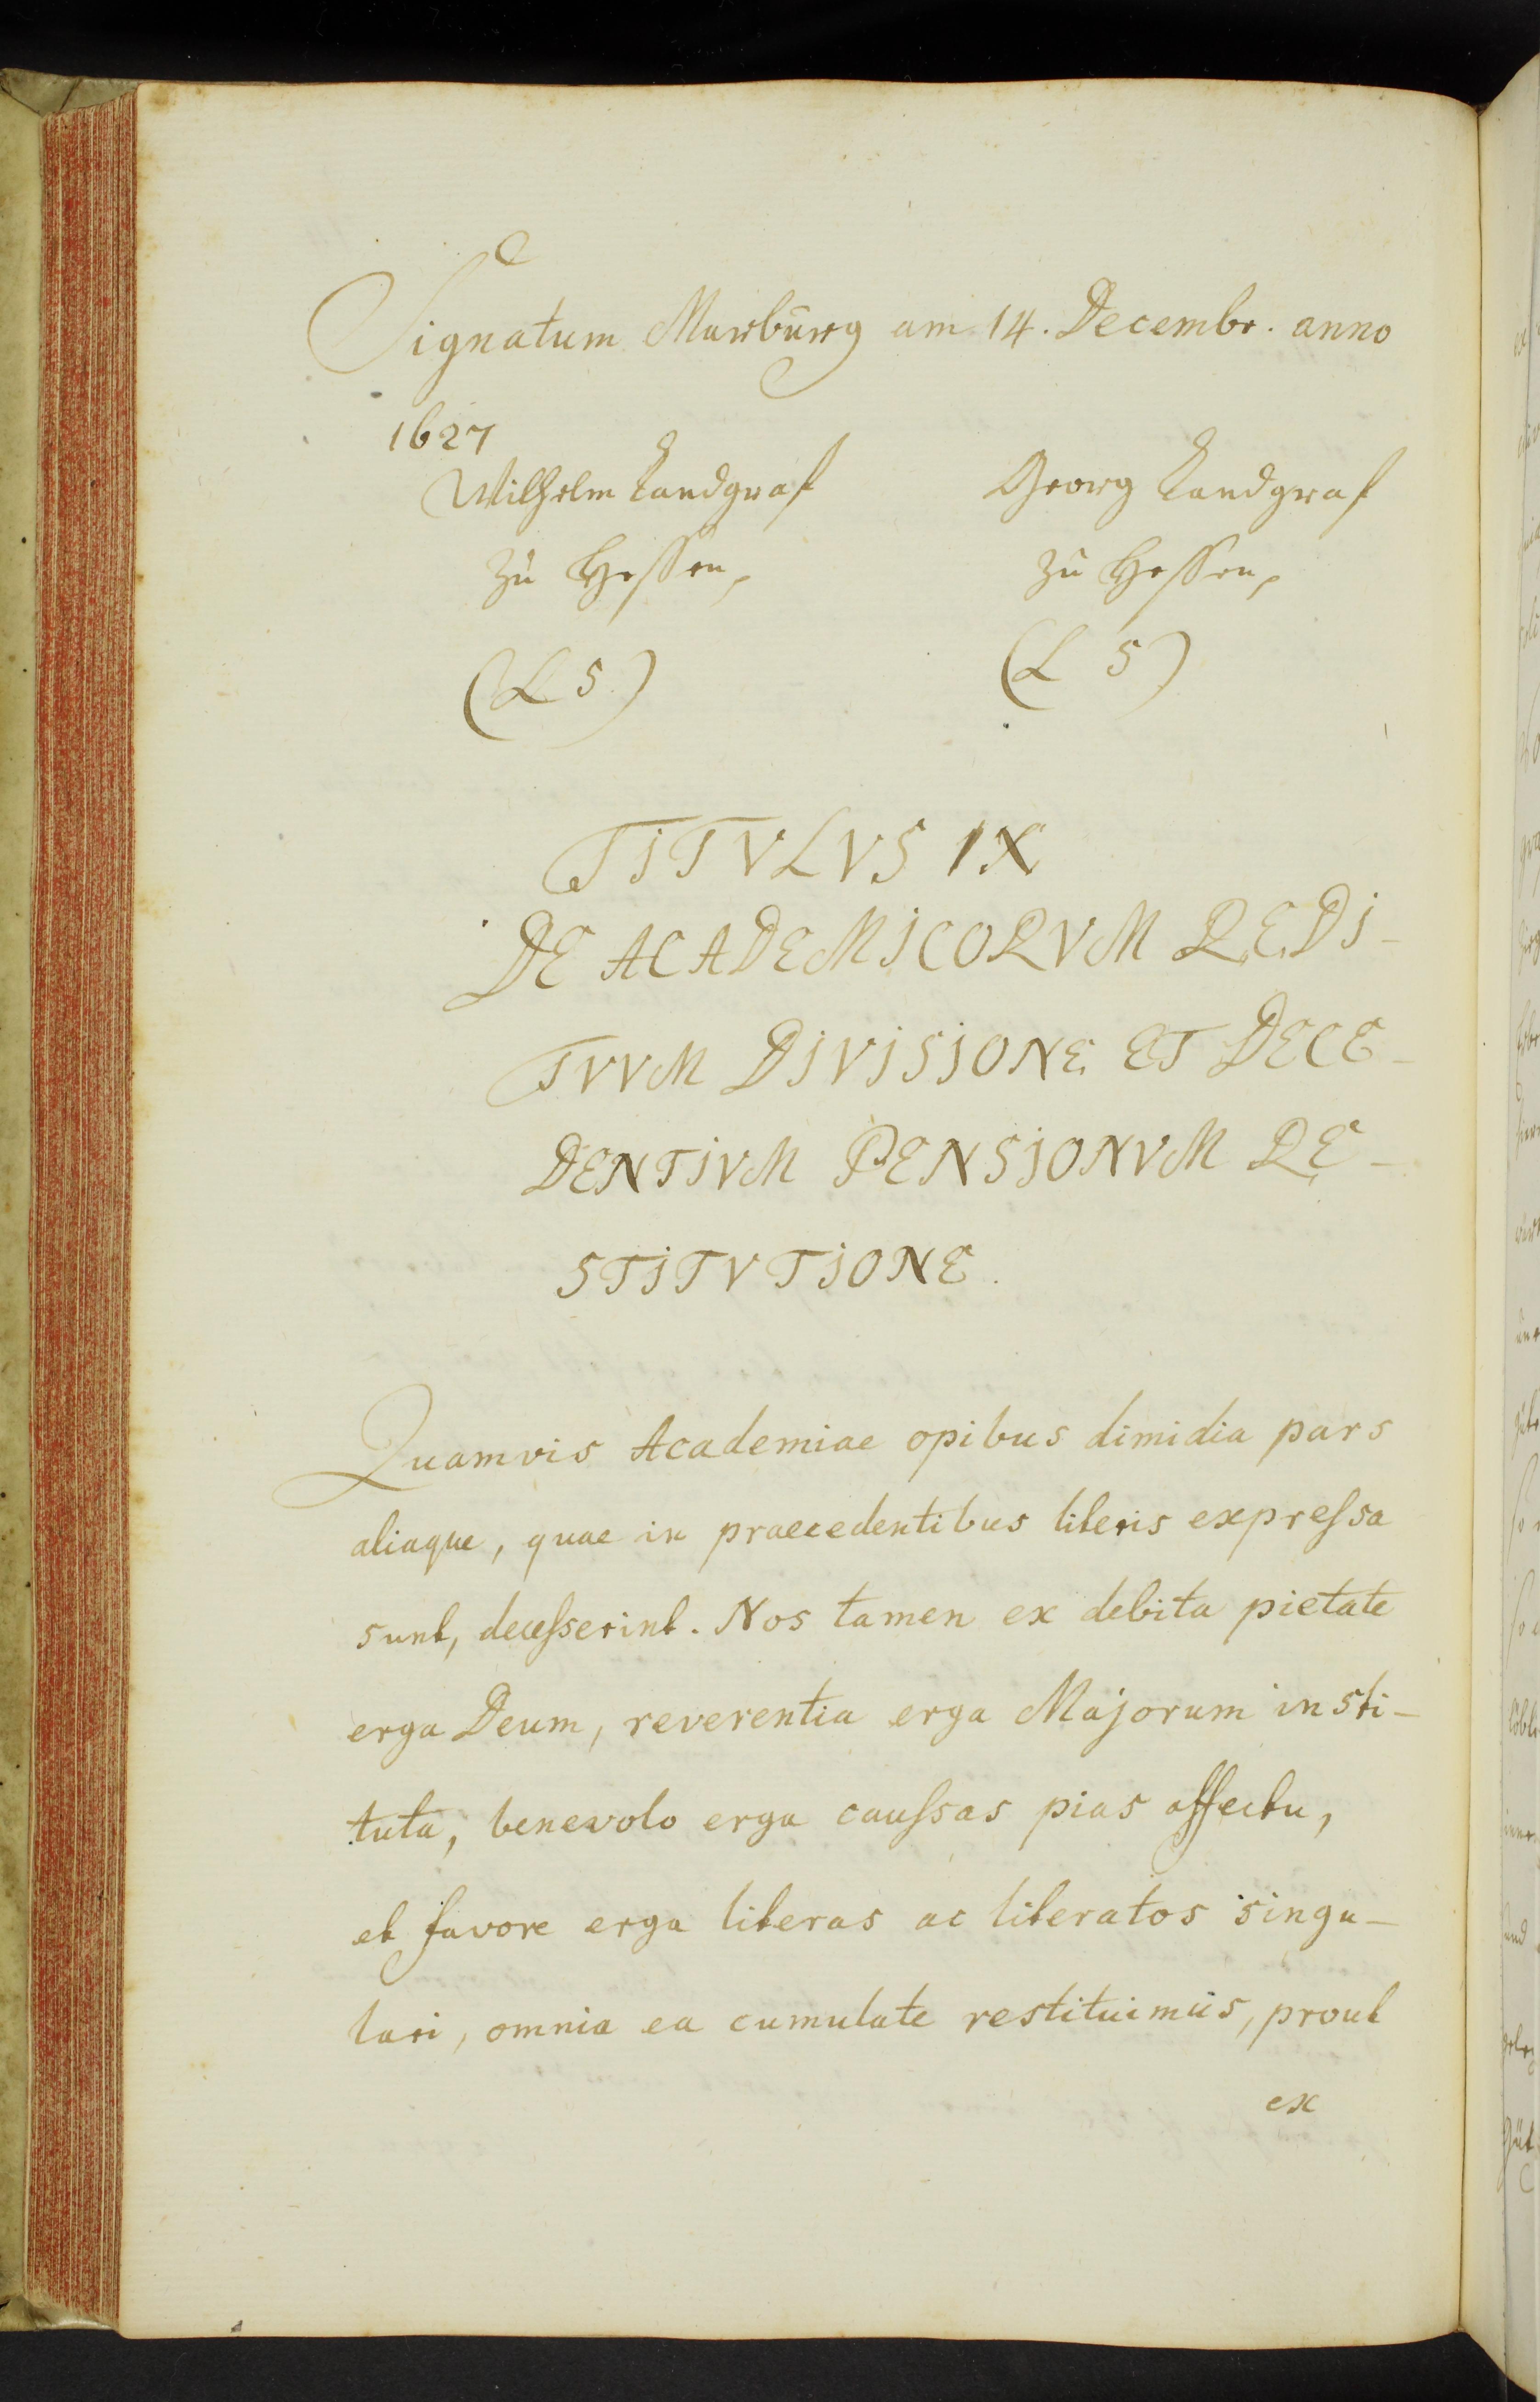 Signatum Marburg am 14. Decembr. anno
1627
Wilhelm Landgraf
zu Hessen,
(L S)
Georg Landgraf
zu Hessen,
(L S)
TITVLVS IX
DE ACADEMICORVM REDI-
TVVM DIVISIONE ET DECE-
DENTIVM PENSIONVM RE-
STITVTIONE.
Quamvis Academiae opibus dimidia pars
aliaque, quae in praecedentibus literis expreſsa
sunt, deceſserint. Nos tamen ex debita pietate
erga Deum, reverentia erga Majorum insti-
tuta, benevolo erga cauſsas pias affectu,
et favore erga literas ac literatos singu-
lari, omnia ea cumulate restituimus, prout
ex